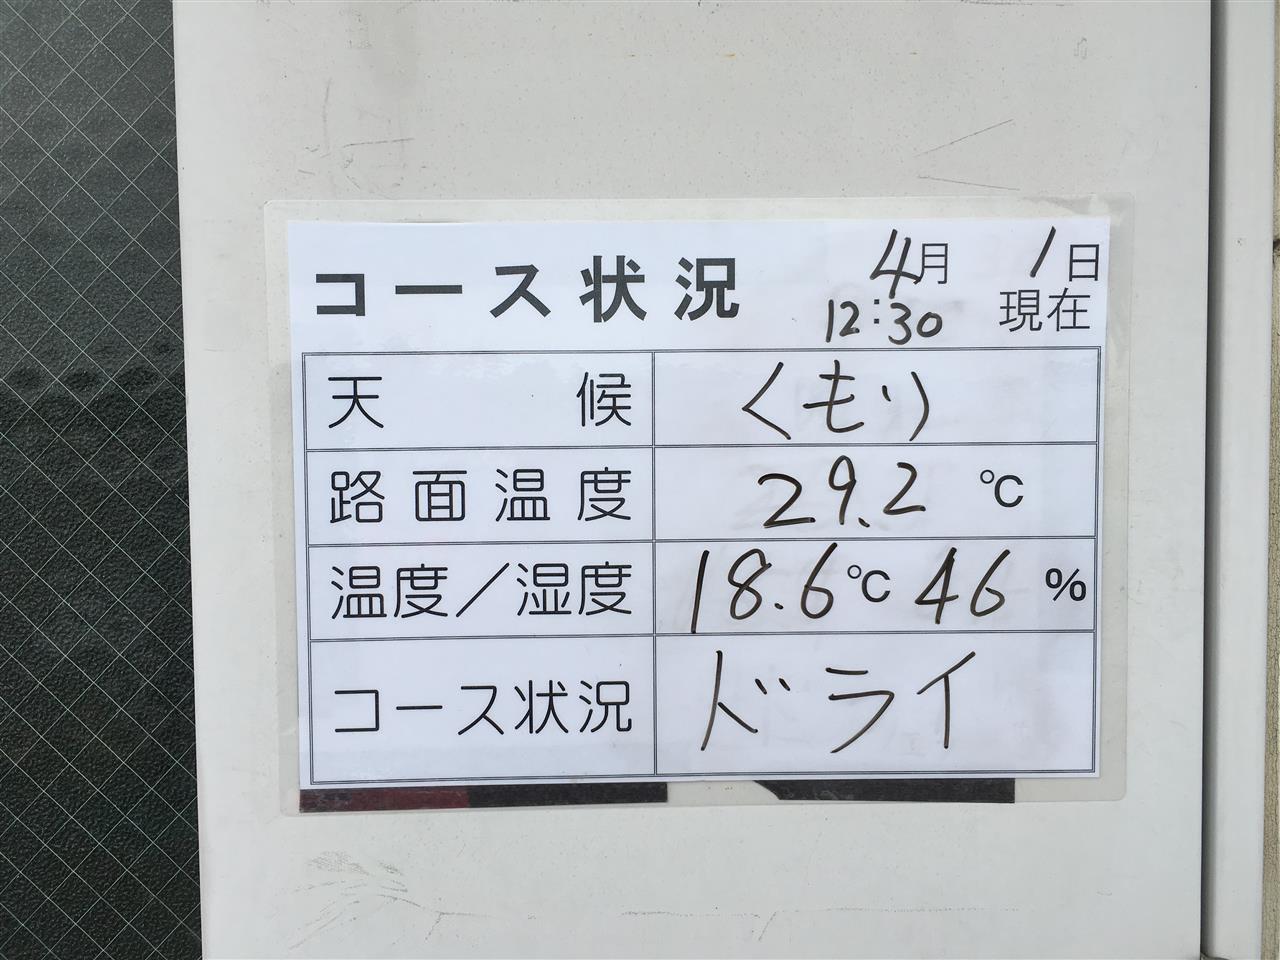 コース状況 4月 1日
12:30 現在
天候 くもり
路面温度 29.2 ℃
温度／湿度 18.6℃ 46%
コース状況 ドライ